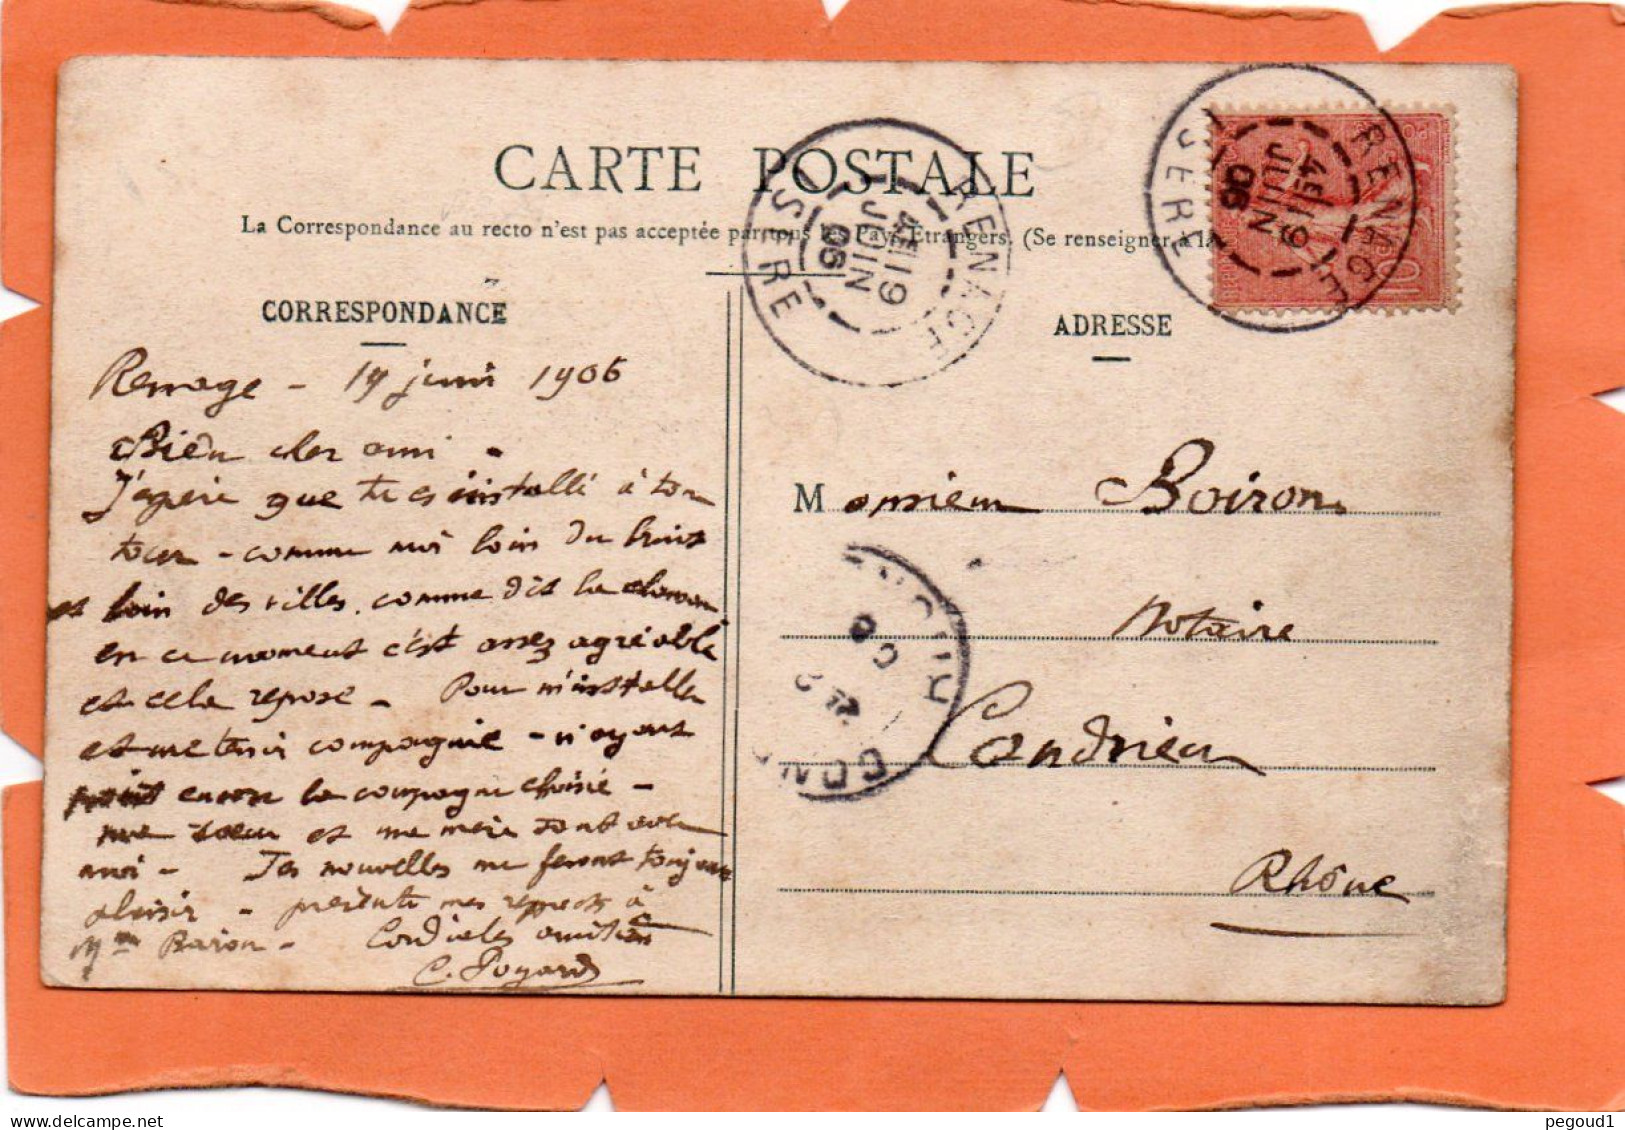 CARTE POSTALE
La Correspondance au recto n'est pas acceptée par tous les Pays Etrangers. (Se renseigner à la
CORRESPONDANCE
ADRESSE
RENAGE
ISERE
4E 19
JUIN
06
RENAGE
ISERE
4E 19
JUIN
06
Renage - 19 juin 1906
Bien cher ami -
J'espère que tu es installé à ton
tour - comme moi loin du bruit
et loin des villes, comme dit la chanson
en ce moment c'est assez agréable
et cela repose - Pour m'installer
et me tenir compagnie - n'ayant
point encore la compagne choisie -
ma soeur et ma mère sont avec
moi - Tes nouvelles me feront toujours
plaisir - présente mes respects à
Mme Boiron - Cordiales amitiés
C. Poyard
Monsieur Boiron
Notaire
Condrieu
Rhône
pegoud1